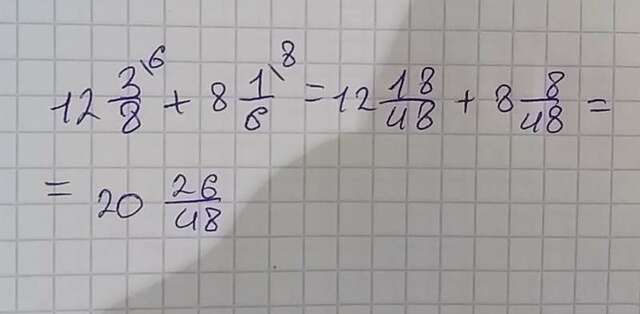 12 3/8 \6 + 8 1/6 \8 = 12 18/48 + 8 8/48 =
= 20 26/48